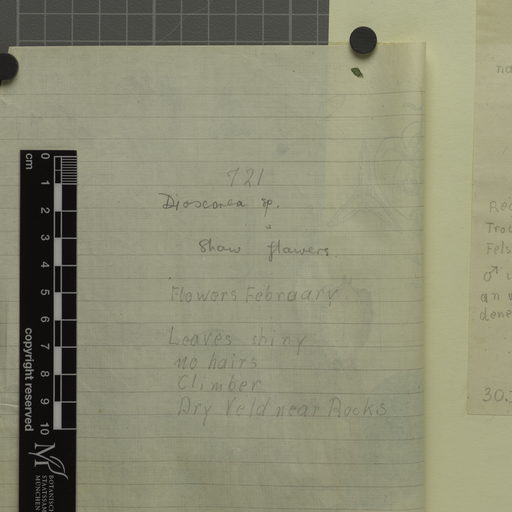 721
Dioscorea sp.
Show flowers.
Flowers Febraary
Leaves shiny
no hairs
Climber
Dry Veld near Rocks
cm
0
1
2
3
4
5
6
7
8
9
10
copyright reserved
BOTANISCHE
STAATSSAMMLUNG
MÜNCHEN
na
Fels
♂
an
dene